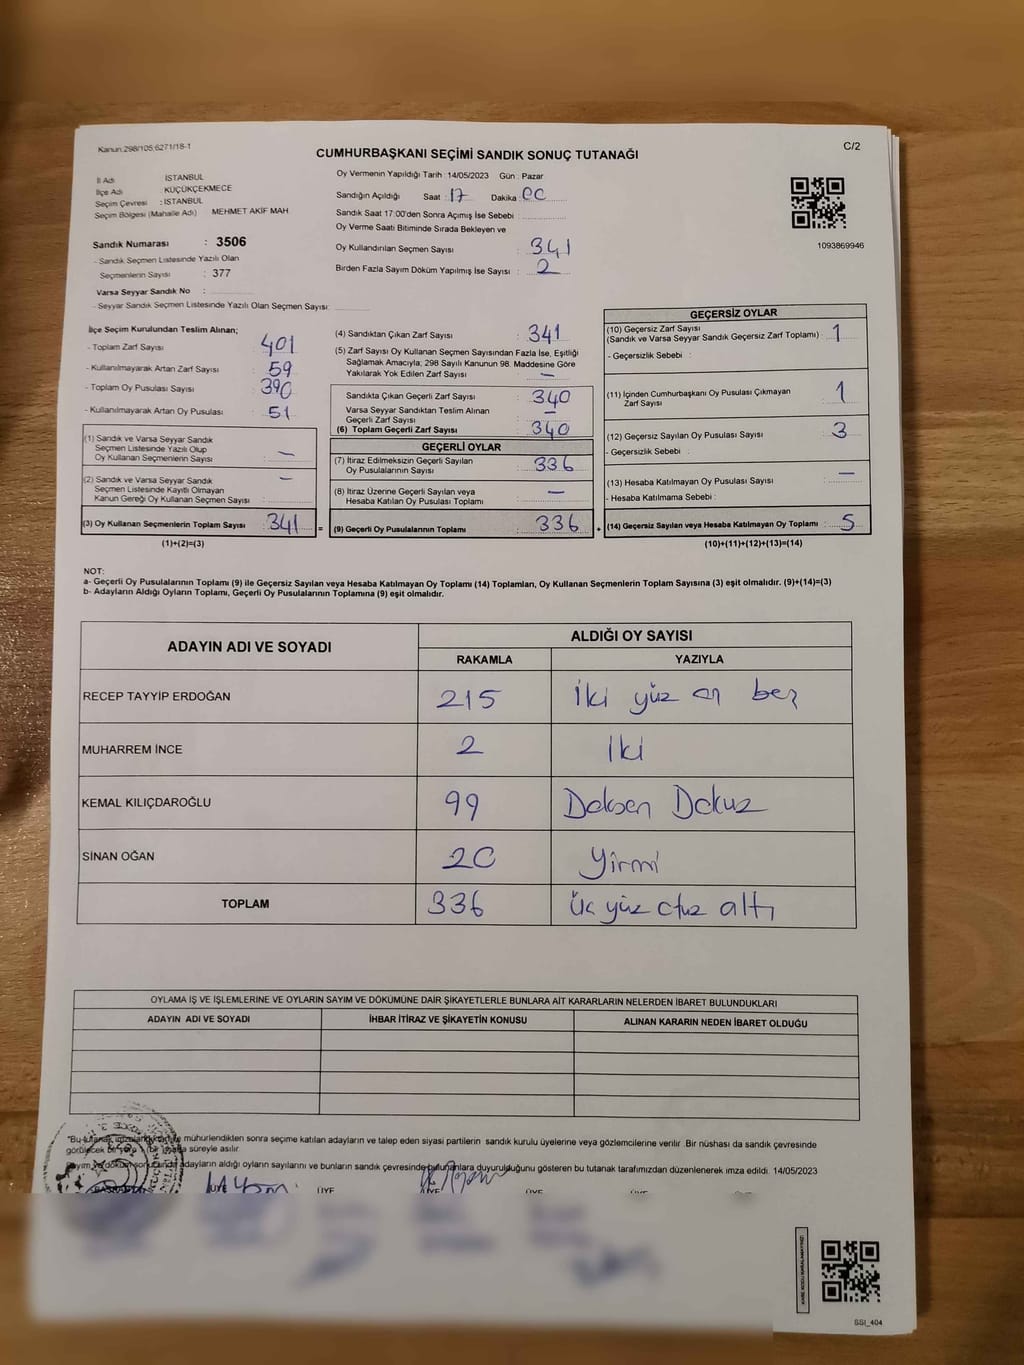 Kanun:298/105;6271/18-1
C/2
CUMHURBAŞKANI SEÇİMİ SANDIK SONUÇ TUTANAĞI
İl Adı : İSTANBUL
İlçe Adı : KÜÇÜKÇEKMECE
Seçim Çevresi : İSTANBUL
Seçim Bölgesi (Mahalle Adı) MEHMET AKİF MAH
Sandık Numarası : 3506
- Sandık Seçmen Listesinde Yazılı Olan
Seçmenlerin Sayısı : 377
Varsa Seyyar Sandık No :
- Seyyar Sandık Seçmen Listesinde Yazılı Olan Seçmen Sayısı:
Oy Vermenin Yapıldığı Tarih : 14/05/2023 Gün : Pazar
Sandığın Açıldığı Saat : 17 Dakika : 00
Sandık Saat 17:00'den Sonra Açımış İse Sebebi :
Oy Verme Saati Bitiminde Sırada Bekleyen ve
Oy Kullandırılan Seçmen Sayısı : 341
Birden Fazla Sayım Döküm Yapılmış İse Sayısı : 2
1093869946
İlçe Seçim Kurulundan Teslim Alınan;
- Toplam Zarf Sayısı : 401
- Kullanılmayarak Artan Zarf Sayısı : 59
- Toplam Oy Pusulası Sayısı : 390
- Kullanılmayarak Artan Oy Pusulası : 51
(1) Sandık ve Varsa Seyyar Sandık
Seçmen Listesinde Yazılı Olup
Oy Kullanan Seçmenlerin Sayısı : —
(2) Sandık ve Varsa Seyyar Sandık
Seçmen Listesinde Kayıtlı Olmayan
Kanun Gereği Oy Kullanan Seçmen Sayısı : —
(3) Oy Kullanan Seçmenlerin Toplam Sayısı : 341
(1)+(2)=(3)
(4) Sandıktan Çıkan Zarf Sayısı : 341
(5) Zarf Sayısı Oy Kullanan Seçmen Sayısından Fazla İse, Eşitliği
Sağlamak Amacıyla; 298 Sayılı Kanunun 98. Maddesine Göre
Yakılarak Yok Edilen Zarf Sayısı : —
Sandıkta Çıkan Geçerli Zarf Sayısı : 340
Varsa Seyyar Sandıktan Teslim Alınan
Geçerli Zarf Sayısı : —
(6) Toplam Geçerli Zarf Sayısı : 340
GEÇERLİ OYLAR
(7) İtiraz Edilmeksizin Geçerli Sayılan
Oy Pusulalarının Sayısı : 336
(8) İtiraz Üzerine Geçerli Sayılan veya
Hesaba Katılan Oy Pusulası Toplamı : —
= (9) Geçerli Oy Pusulalarının Toplamı : 336 +
GEÇERSİZ OYLAR
(10) Geçersiz Zarf Sayısı
(Sandık ve Varsa Seyyar Sandık Geçersiz Zarf Toplamı) : 1
- Geçersizlik Sebebi :
(11) İçinden Cumhurbaşkanı Oy Pusulası Çıkmayan
Zarf Sayısı : 1
(12) Geçersiz Sayılan Oy Pusulası Sayısı : 3
- Geçersizlik Sebebi :
(13) Hesaba Katılmayan Oy Pusulası Sayısı : —
- Hesaba Katılmama Sebebi :
(14) Geçersiz Sayılan veya Hesaba Katılmayan Oy Toplamı : 5
(10)+(11)+(12)+(13)=(14)
NOT:
a- Geçerli Oy Pusulalarının Toplamı (9) ile Geçersiz Sayılan veya Hesaba Katılmayan Oy Toplamı (14) Toplamları, Oy Kullanan Seçmenlerin Toplam Sayısına (3) eşit olmalıdır. (9)+(14)=(3)
b- Adayların Aldığı Oyların Toplamı, Geçerli Oy Pusulalarının Toplamına (9) eşit olmalıdır.
ADAYIN ADI VE SOYADI ALDIĞI OY SAYISI
RAKAMLA YAZIYLA
RECEP TAYYİP ERDOĞAN 215 İki yüz on beş
MUHARREM İNCE 2 İki
KEMAL KILIÇDAROĞLU 99 Doksan Dokuz
SİNAN OĞAN 20 Yirmi
TOPLAM 336 Üç yüz otuz altı
OYLAMA İŞ VE İŞLEMLERİNE VE OYLARIN SAYIM VE DÖKÜMÜNE DAİR ŞİKAYETLERLE BUNLARA AİT KARARLARIN NELERDEN İBARET BULUNDUKLARI
ADAYIN ADI VE SOYADI İHBAR İTİRAZ VE ŞİKAYETİN KONUSU ALINAN KARARIN NEDEN İBARET OLDUĞU
"Bu mühürlendikten sonra seçime katılan adayların ve talep eden siyasi partilerin sandık kurulu üyelerine veya gözlemcilerine verilir. Bir nüshası da sandık çevresinde
görülecek bir yere süreyle asılır.
adayların aldığı oyların sayılarını ve bunların sandık çevresinde bulunanlara duyurulduğunu gösteren bu tutanak tarafımızdan düzenlenerek imza edildi. 14/05/2023
ÜYE ÜYE ÜYE ÜYE ÜYE
SSI_404